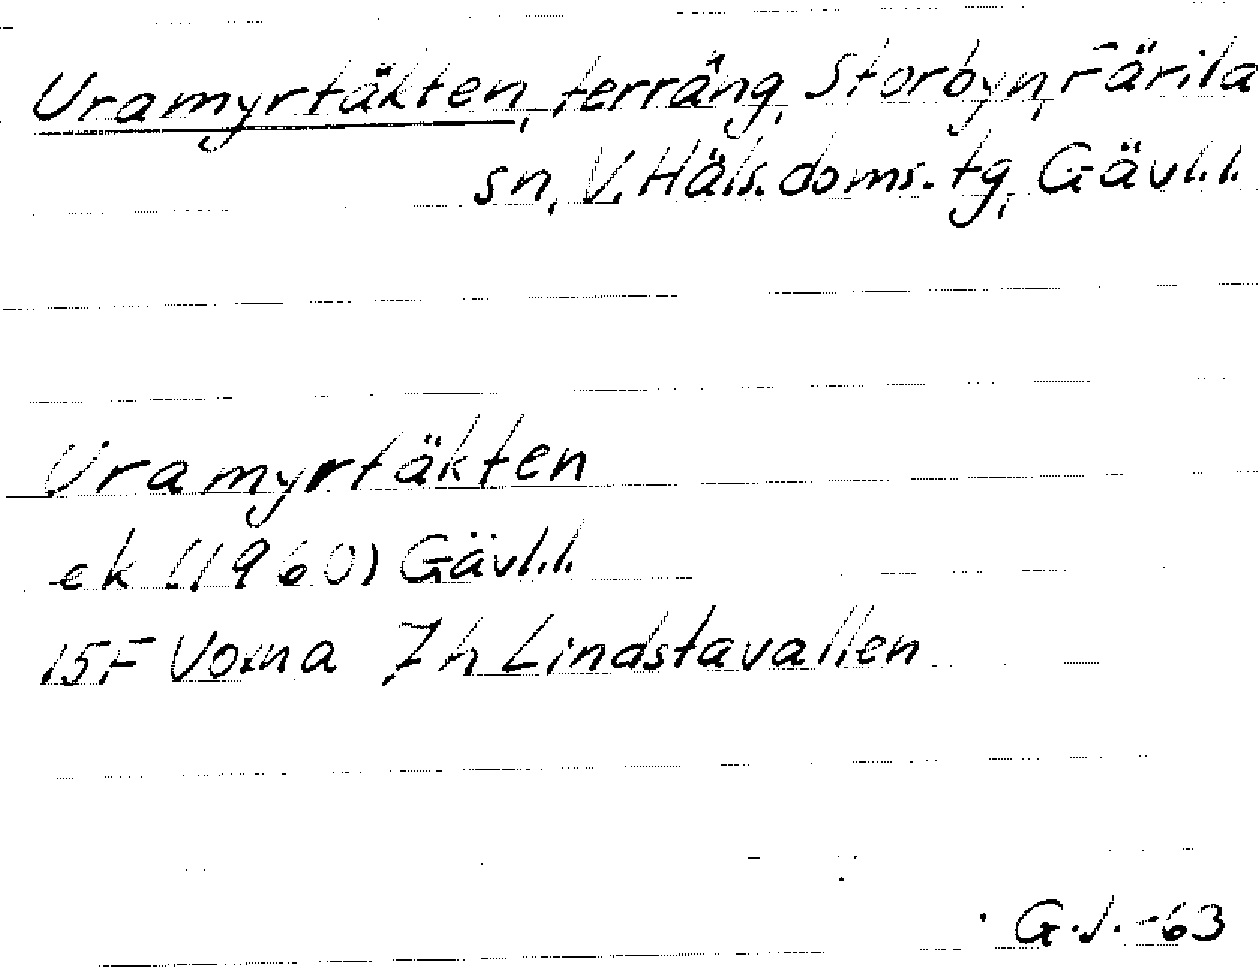 Uramyrtäkten, terräng, Storbyn, Färila
sn, V. Häls. doms. tg, Gävl. l.
Uramyrtäkten
ek (1960) Gävl. l.
15F Voxna 7h Lindstavallen
G.J. -63